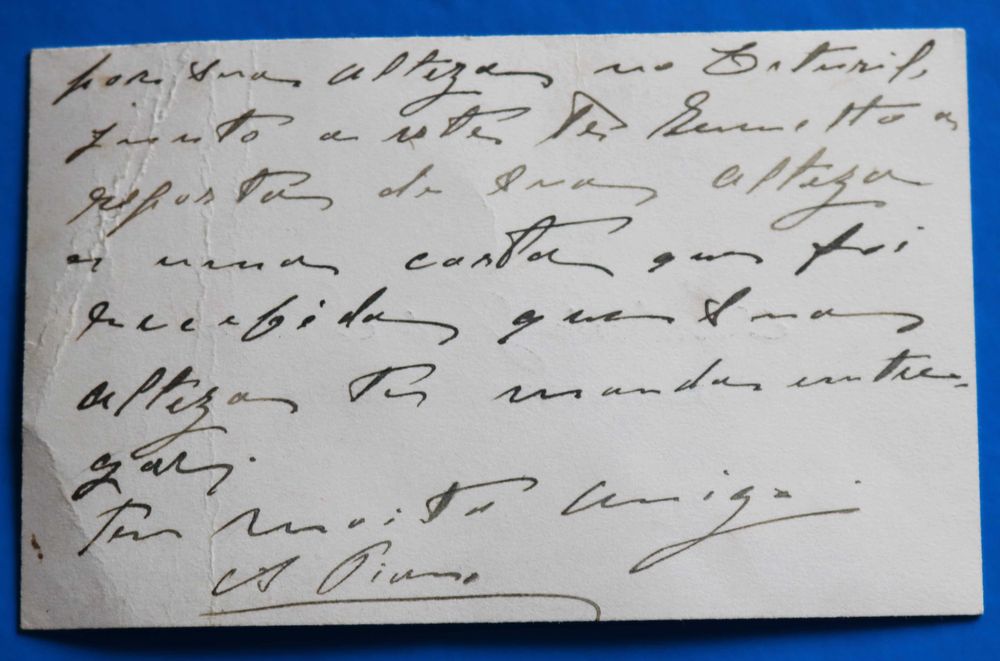 por Sua Alteza no Esturil,
junto a este te remetto a
resposta de Sua Alteza
e uma carta que foi
recebida que Sua
Alteza te manda entre-
gar.
Teu muito amigo.
A